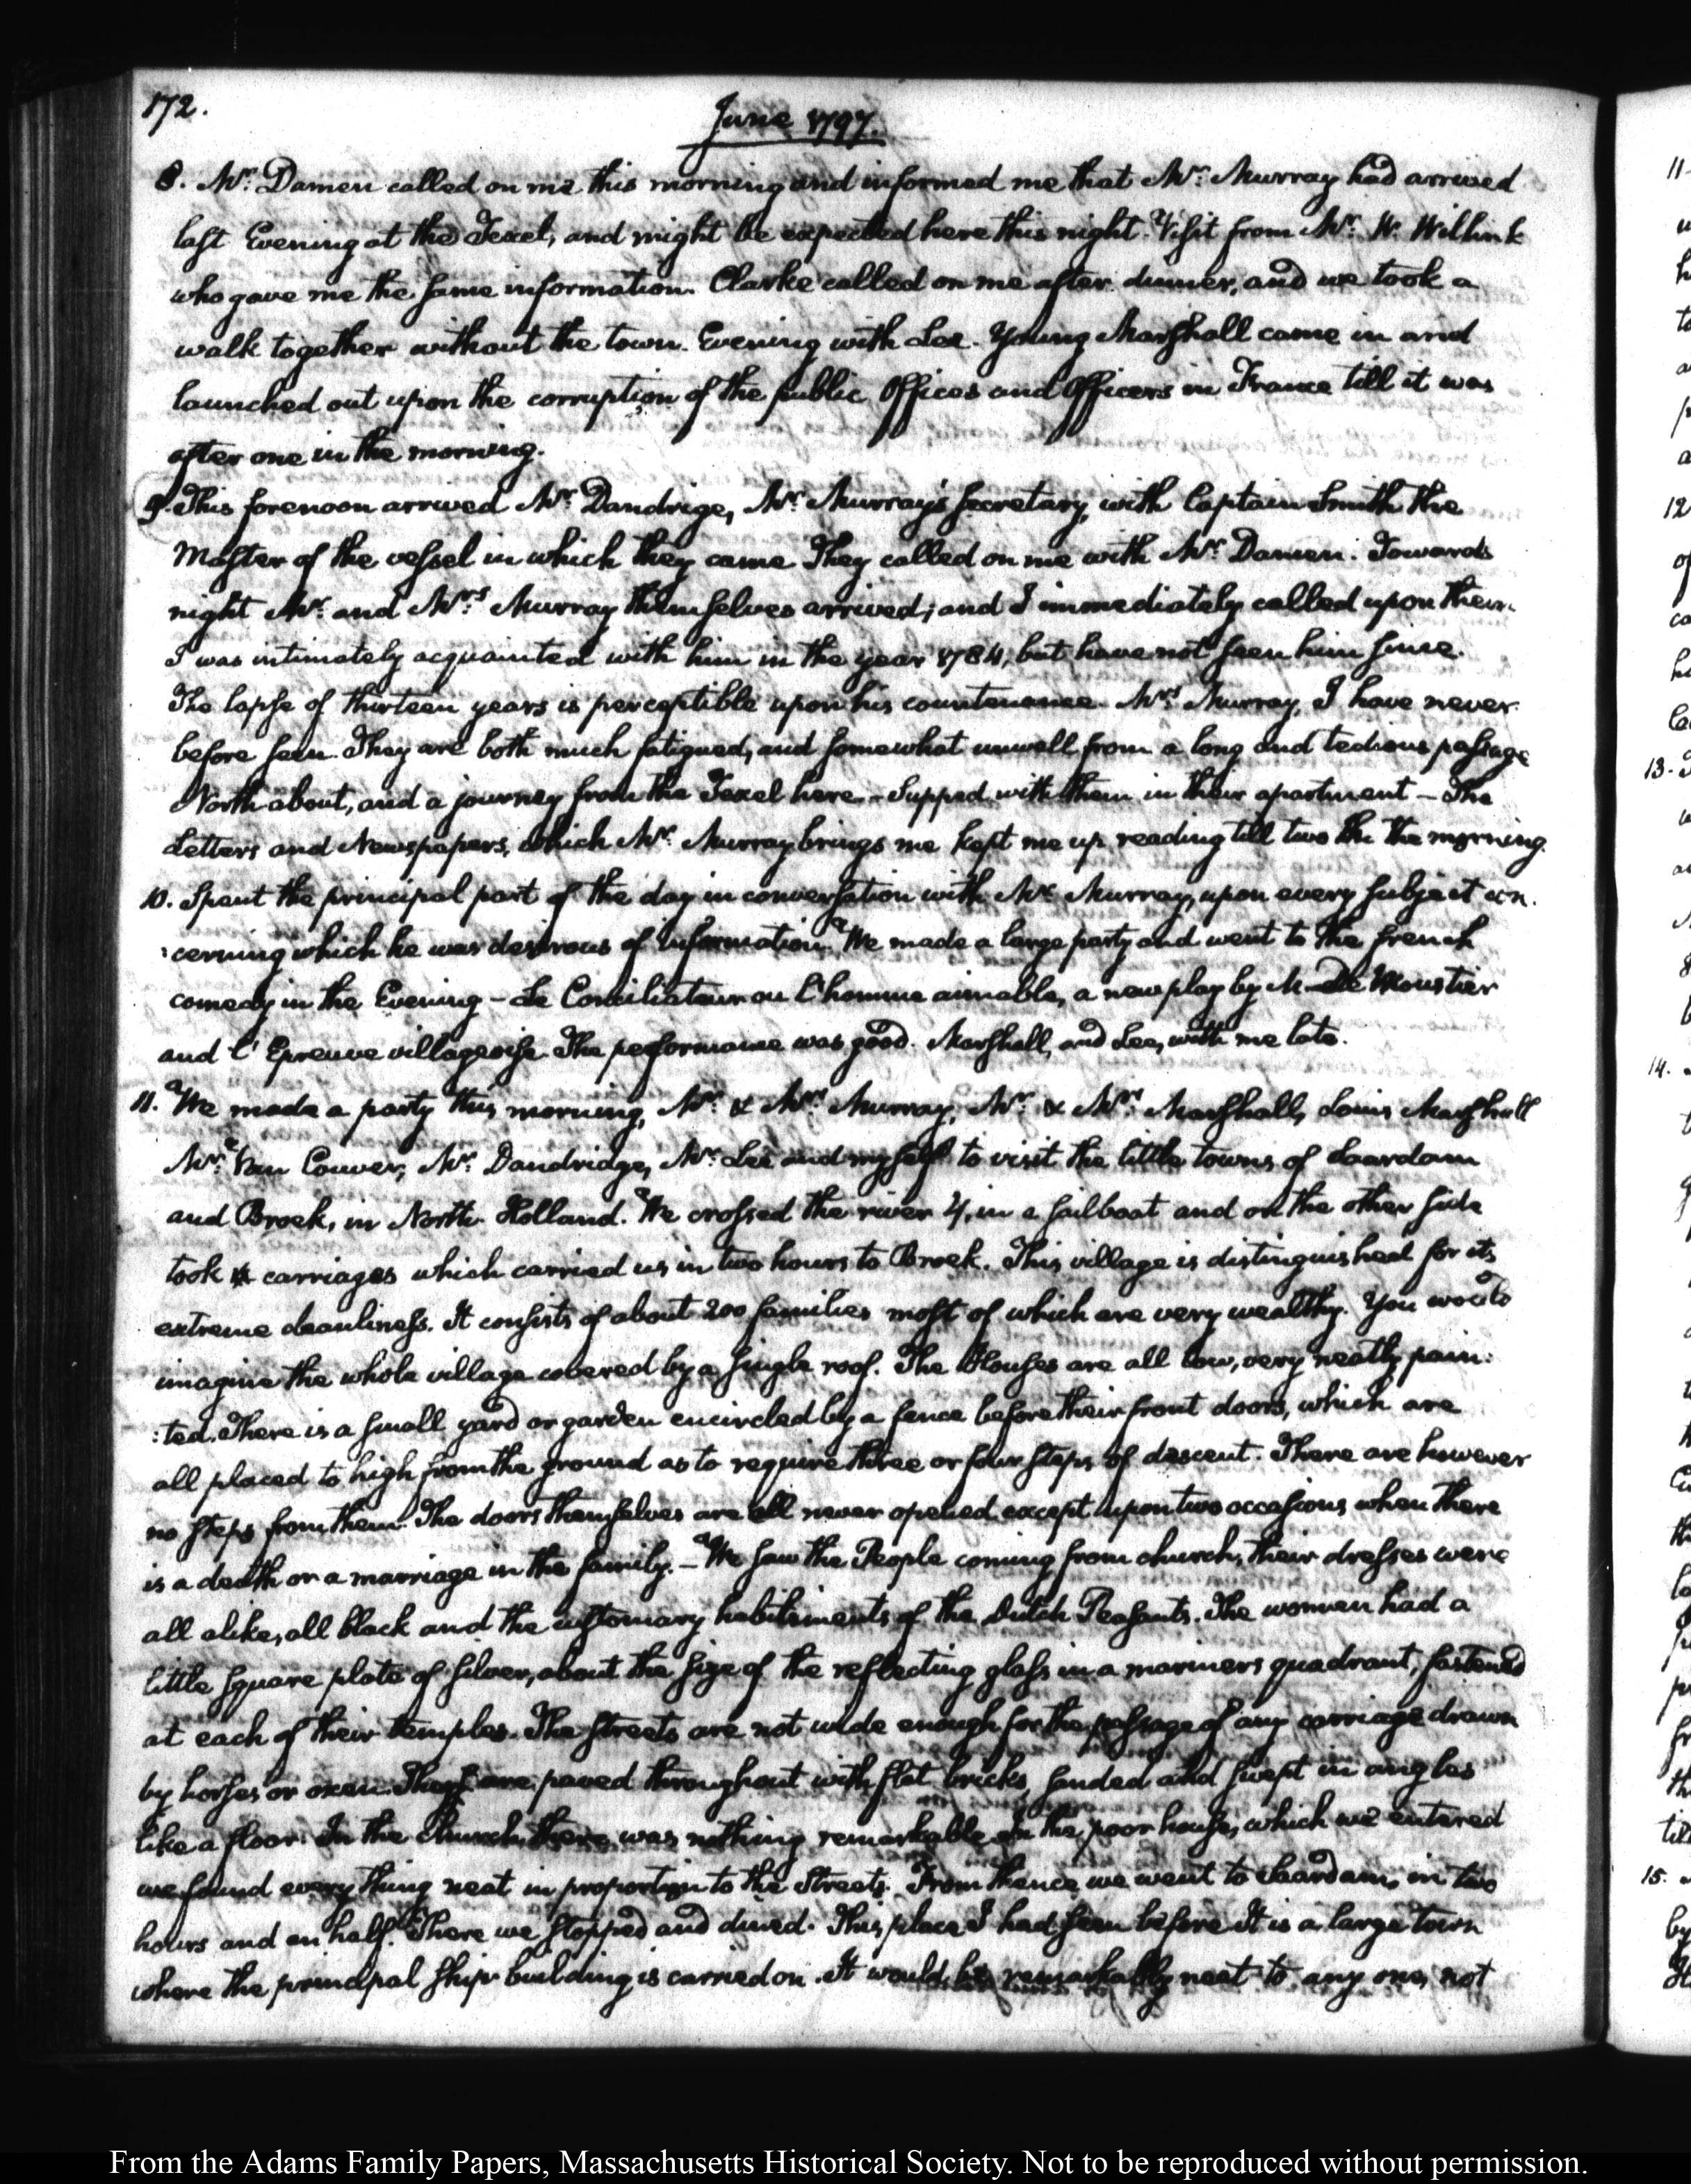 172.
June 1797.
8. Mr. Damen called on me this morning and informed me that Mr. Murray had arrived
last Evening at the Texel, and might be expected here this night. Visit from Mr. W. Willink
who gave me the same information. Clarke called on me after dinner, and we took a
walk together without the town. Evening with Lee. Young Marshall came in and
launched out upon the corruption of the public Offices and Officers in France till it was
after one in the morning.
9. This forenoon arrived Mr. Dandrige, Mr. Murray's Secretary, with Captain Smith the
Master of the vessel in which they came They called on me with Mr. Damen. Towards
night Mr. and Mrs. Murray themselves arrived; and I immediately called upon them.
I was intimately acquainted with him in the year 1784, but have not seen him since.
The lapse of thirteen years is perceptible upon his countenance. Mrs. Murray, I have never
before seen. They are both much fatigued, and somewhat unwell from a long and tedious passage
North about, and a journey from the Texel here.—Supped with them in their apartment—The
Letters and Newspapers, which Mr. Murray brings me kept me up reading till two in the morning.
10. Spent the principal part of the day in conversation with Mr. Murray, upon every subject con-
:cerning which he was desirous of information. We made a large party and went to the french
comedy in the Evening—Le Conciliateur ou l'homme aimable, a new play by M. De Moustier
and l'Epreuve villageoise. The performance was good. Marshall, and Lee, with me late.
11. We made a party this morning, Mr. & Mrs. Murray, Mr. & Mrs. Marshall, Louis Marshall
Mr. Van Couver, Mr. Dandridge, Mr. Lee and myself to visit the little towns of Saardam
and Broek, in North Holland. We crossed the river Y, in a sailboat and on the other side
took carriages which carried us in two hours to Broek. This village is distinguished for its
extreme cleanliness. It consists of about 200 families most of which are very wealthy. You would
imagine the whole village covered by a single roof. The Houses are all low, very neatly pain:
:ted. There is a small yard or garden encircled by a fence before their front doors, which are
all placed to high from the ground as to require three or four steps of descent. There are however
no steps from them. The doors themselves are all never opened except upon two occasions when there
is a death or a marriage in the family.—We saw the People coming from church, their dresses were
all alike, all black and the customary habiliments of the Dutch Peasants. The women had a
little square plate of silver, about the size of the reflecting glass in a mariners quadrant, fastened
at each of their temples. The streets are not wide enough for the passage of any carriage drawn
by horses or oxen. They are paved throughout with flat bricks, sanded and swept in angles
like a floor. In the Church, there was nothing remarkable in the poor house, which we entered
we found every thing neat in proportion to the Streets. From thence we went to Saardam, in two
hours and an half. There we stopped and dined. This place I had seen before It is a large town
where the principal ship building is carried on. It would be remarkably neat to any one, not
11
12
13.
14.
15.
From the Adams Family Papers, Massachusetts Historical Society. Not to be reproduced without permission.